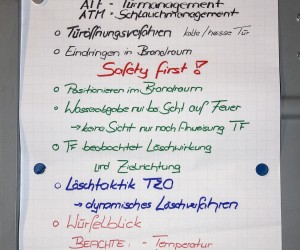 ATF - Türmanagement
ATM - Schlauchmanagement
o Türöffnungsverfahren kalte/heisse Tür
o Eindringen in Brandraum
Safety first!
o Positionieren im Brandraum
o Wasserabgabe nur bei Schl auf Feuer
→ keine Sicht nur nach Anweisung TF
o TF beobachtet Löschwirkung
und Zielrichtung
o Löschtaktik TZO
→ dynamisches Löschverfahren
o Würfelblick
BEACHTE: - Temperatur